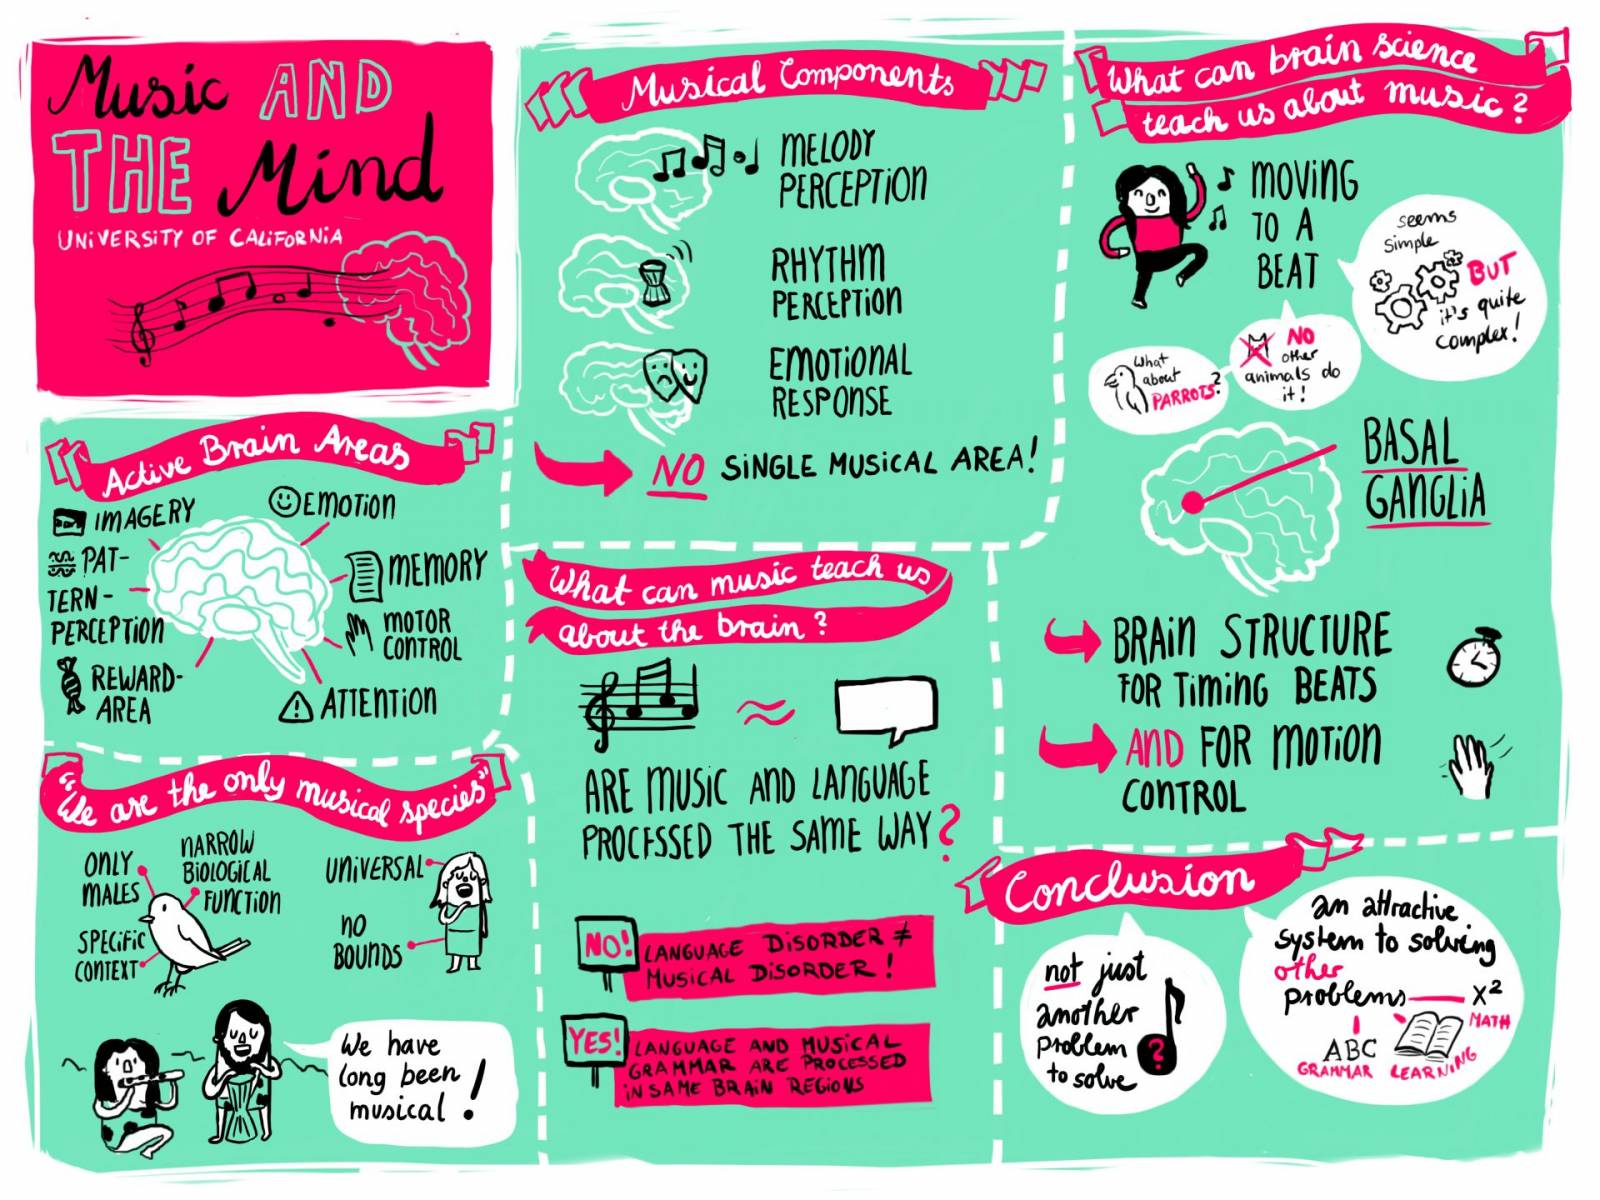 Music AND
THE Mind
UNIVERSITY OF CALIFORNIA
Active Brain Areas
IMAGERY
PAT-
TERN-
PERCEPTION
REWARD-
AREA
EMOTION
MEMORY
MOTOR
CONTROL
ATTENTION
"We are the only musical species"
ONLY
MALES
NARROW
BIOLOGICAL
FUNCTION
SPECIFIC
CONTEXT
UNIVERSAL
NO
BOUNDS
We have
long been
musical!
Musical Components
MELODY
PERCEPTION
RHYTHM
PERCEPTION
EMOTIONAL
RESPONSE
NO SINGLE MUSICAL AREA!
What can music teach us
about the brain?
ARE MUSIC AND LANGUAGE
PROCESSED THE SAME WAY?
NO!
LANGUAGE DISORDER ≠
MUSICAL DISORDER!
YES!
LANGUAGE AND MUSICAL
GRAMMAR ARE PROCESSED
IN SAME BRAIN REGIONS
What can brain science
teach us about music?
MOVING
TO A
BEAT
seems
simple
BUT
it's quite
complex!
NO
other
animals do
it!
What
about
PARROTS?
BASAL
GANGLIA
BRAIN STRUCTURE
FOR TIMING BEATS
AND FOR MOTION
CONTROL
Conclusion
not just
another
problem
to solve
?
an attractive
system to solving
other
problems
X²
MATH
ABC
GRAMMAR
LEARNING